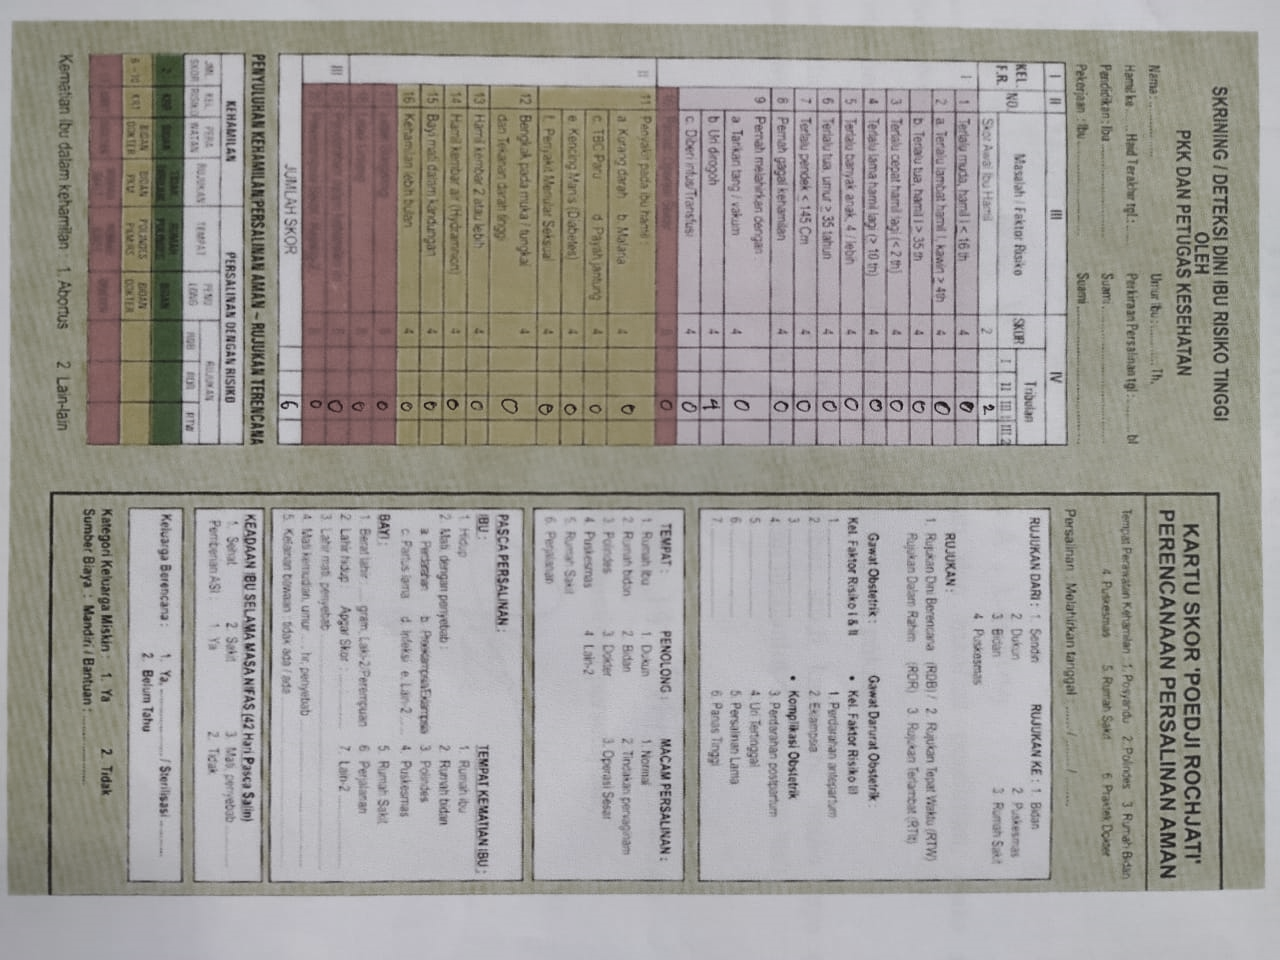 SKRINING / DETEKSI DINI IBU RISIKO TINGGI
OLEH
PKK DAN PETUGAS KESEHATAN
Nama : ............ Umur Ibu : ............ Th.
Hamil ke ...... Haid Terakhir tgl : ...... Perkiraan Persalinan tgl : ...... bl
Pendidikan : Ibu ............ Suami ............
Pekerjaan : Ibu ............ Suami ............
I II III IV
KEL. F.R. NO. Masalah / Faktor Risiko SKOR Tribulan
I II III.1 III.2
Skor Awal Ibu Hamil 2 2
I 1 Terlalu muda, hamil I < 16 th 4 0
2 a. Terlalu lambat hamil I, kawin > 4th 4 0
b. Terlalu tua, hamil I > 35 th 4 0
3 Terlalu cepat hamil lagi (< 2 th) 4 0
4 Terlalu lama hamil lagi (> 10 th) 4 0
5 Terlalu banyak anak, 4 / lebih 4 0
6 Terlalu tua, umur > 35 tahun 4 0
7 Terlalu pendek < 145 Cm 4 0
8 Pernah gagal kehamilan 4 0
9 Pernah melahirkan dengan :
a. Tarikan tang / vakum 4 0
b. Uri dirogoh 4 4
c. Diberi infus/Transfusi 4 0
0
II 11 Penyakit pada ibu hamil
a. Kurang darah b. Malaria 4 0
c. TBC Paru d. Payah jantung 4 0
e. Kencing Manis (Diabetes) 4 0
f. Penyakit Menular Seksual 4 0
12 Bengkak pada muka / tungkai
dan Tekanan darah tinggi 4 0
13 Hamil kembar 2 atau lebih 4 0
14 Hamil kembar air (Hydramnion) 4 0
15 Bayi mati dalam kandungan 4 0
16 Kehamilan lebih bulan 4 0
0
0
III 0
0
JUMLAH SKOR 6
PENYULUHAN KEHAMILAN/PERSALINAN AMAN - RUJUKAN TERENCANA
KEHAMILAN PERSALINAN DENGAN RISIKO
JML. SKOR KEL. RISIKO PERA WATAN RUJUKAN TEMPAT PENO LONG RUJUKAN
RDB RDR RTW
2 KRR BIDAN TIDAK DIRUJUK RUMAH POLINDES BIDAN
6 - 10 KRT BIDAN DOKTER BIDAN PKM POLINDES PKM/RS BIDAN DOKTER
Kematian Ibu dalam kehamilan 1. Abortus 2. Lain-lain
KARTU SKOR 'POEDJI ROCHJATI'
PERENCANAAN PERSALINAN AMAN
Tempat Perawatan Kehamilan 1. Posyandu 2. Polindes 3. Rumah Bidan
4. Puskesmas 5. Rumah Sakit 6. Praktek Dokter
Persalinan : Melahirkan tanggal : ...... / ...... / ......
RUJUKAN DARI : 1. Sendiri RUJUKAN KE : 1. Bidan
2. Dukun 2. Puskesmas
3. Bidan 3. Rumah Sakit
4. Puskesmas
RUJUKAN :
1. Rujukan Dini Berencana (RDB) / 2. Rujukan Tepat Waktu (RTW)
Rujukan Dalam Rahim (RDR) 3. Rujukan Terlambat (RTlt)
Gawat Obstetrik : Gawat Darurat Obstetrik :
Kel. Faktor Risiko I & II • Kel. Faktor Risiko III
1. ............ 1. Perdarahan antepartum
2. ............ 2. Eklampsia
3. ............ • Komplikasi Obstetrik
4. ............ 3. Perdarahan postpartum
5. ............ 4. Uri Tertinggal
6. ............ 5. Persalinan Lama
7. ............ 6. Panas Tinggi
TEMPAT : PENOLONG : MACAM PERSALINAN :
1. Rumah Ibu 1. Dukun 1. Normal
2. Rumah bidan 2. Bidan 2. Tindakan pervaginam
3. Polindes 3. Dokter 3. Operasi Sesar
4. Puskesmas 4. Lain-2
5. Rumah Sakit
6. Perjalanan
PASCA PERSALINAN :
IBU : TEMPAT KEMATIAN IBU :
1. Hidup 1. Rumah ibu
2. Mati, dengan penyebab : 2. Rumah bidan
a. Perdarahan b. Preeklampsia/Eklampsia 3. Polindes
c. Partus lama d. Infeksi e. Lain-2 ..... 4. Puskesmas
BAYI : 5. Rumah Sakit
1. Berat lahir : .... gram, Laki-2/Perempuan 6. Perjalanan
2. Lahir hidup : Apgar Skor : ............ 7. Lain-2 ............
3. Lahir mati, penyebab ............
4. Mati kemudian, umur ... hr, penyebab ............
5. Kelainan bawaan : tidak ada / ada
KEADAAN IBU SELAMA MASA NIFAS (42 Hari Pasca Salin)
1. Sehat 2. Sakit 3. Mati, penyebab
Pemberian ASI : 1. Ya 2. Tidak
Keluarga Berencana : 1. Ya, ............ / Sterilisasi ............
2. Belum Tahu
Kategori Keluarga Miskin : 1. Ya 2. Tidak
Sumber Biaya : Mandiri / Bantuan : ............